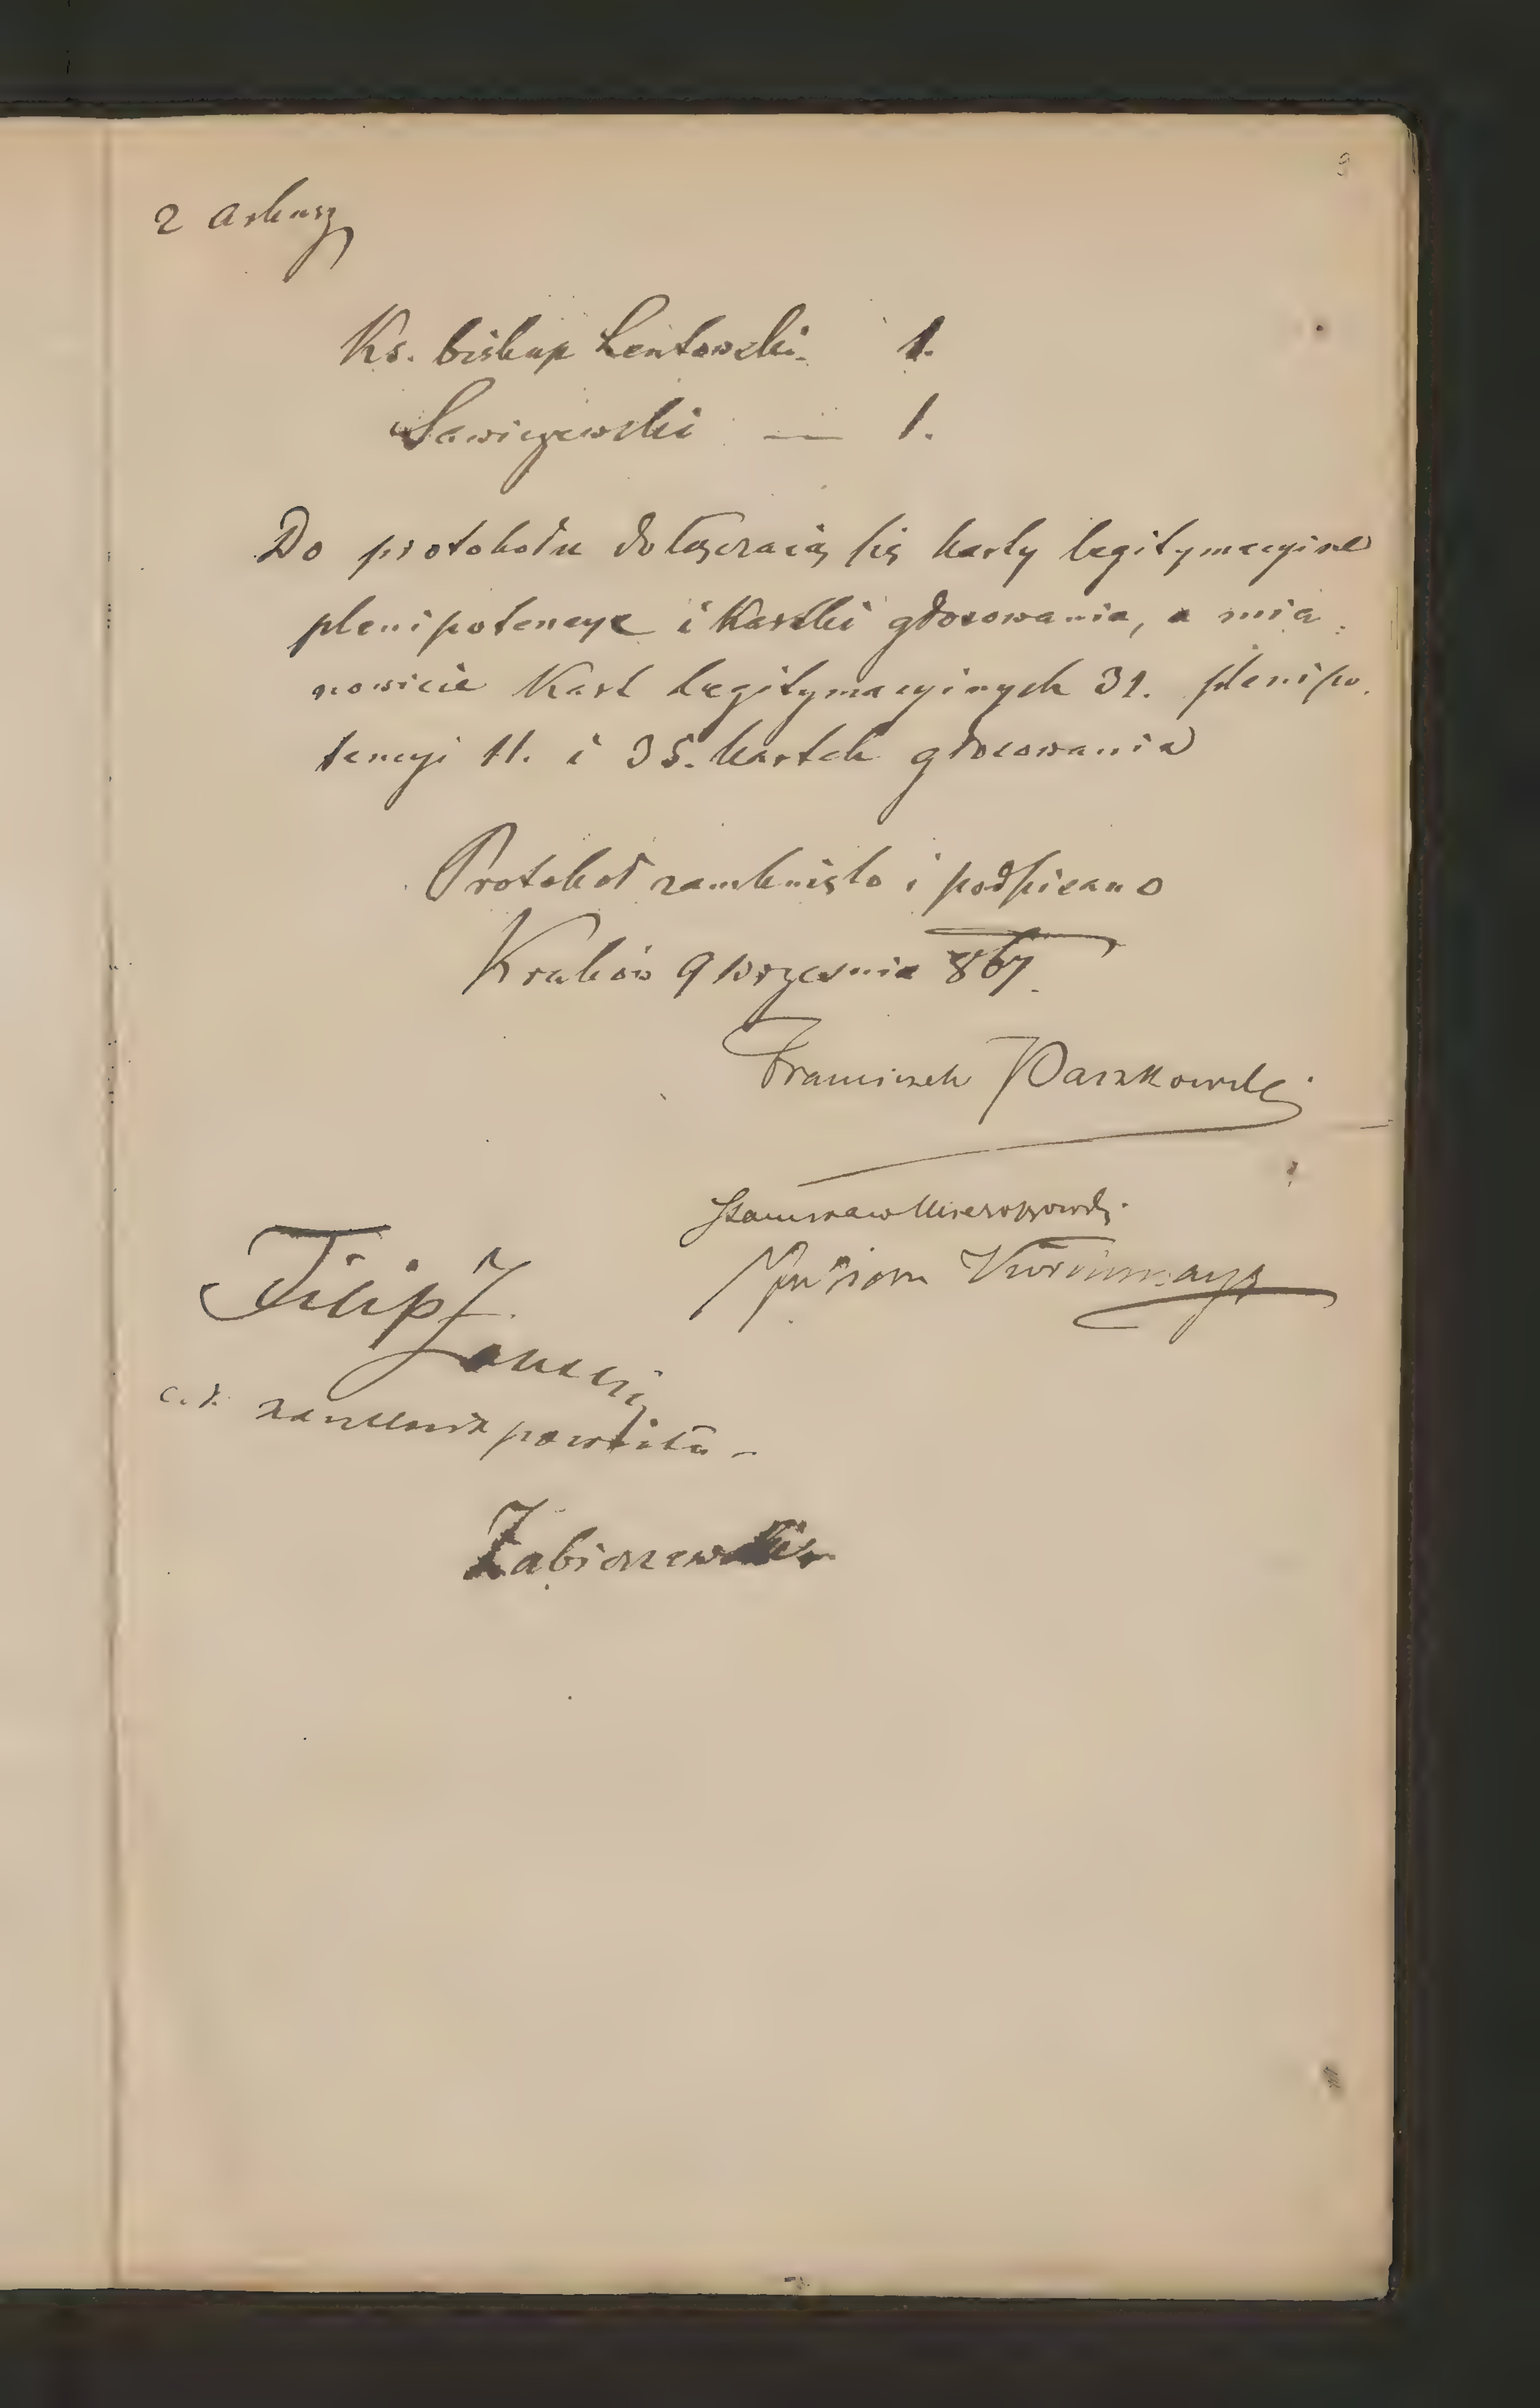 2 arkusz
Ks. biskup Lentowski. 1.
Sawiczewski — 1.
Do protokołu dołączaią się karty legitymacyine
plenipotencye i Kartki głosowania, a mia
nowicie Kart legitymacyinych 31. plenipo
tencyi 11. i 35. kartek głosowania
Protokoł zamknięto i podpisano
Kraków 9 Września 867.
Franciszek Paszkowski
Stanisław Mieroszowski
Filip Zaleski
c. k. naczelnik powiatu
Żabierzewski